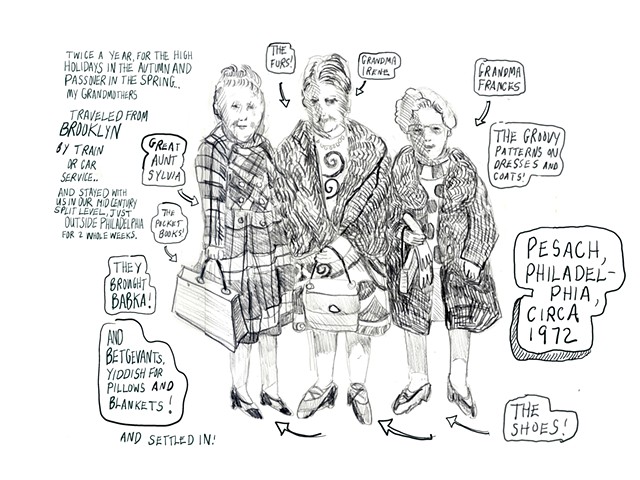 TWICE A YEAR, FOR THE HIGH
HOLIDAYS IN THE AUTUMN AND
PASSOVER IN THE SPRING..
MY GRANDMOTHERS
TRAVELED FROM
BROOKLYN
BY TRAIN
OR CAR
SERVICE..
AND STAYED WITH
US IN OUR MID CENTURY
SPLIT LEVEL, JUST
OUTSIDE PHILADELPHIA
FOR 2 WHOLE WEEKS.
THEY
BROUGHT
BABKA!
AND
BETGEVANTS,
YIDDISH FOR
PILLOWS AND
BLANKETS!
AND SETTLED IN!
GREAT
AUNT
SYLVIA
THE
POCKET
BOOKS!
THE
FURS!
GRANDMA
IRENE
GRANDMA
FRANCES
THE GROOVY
PATTERNS ON
DRESSES AND
COATS!
PESACH,
PHILADEL-
PHIA,
CIRCA
1972
THE
SHOES!